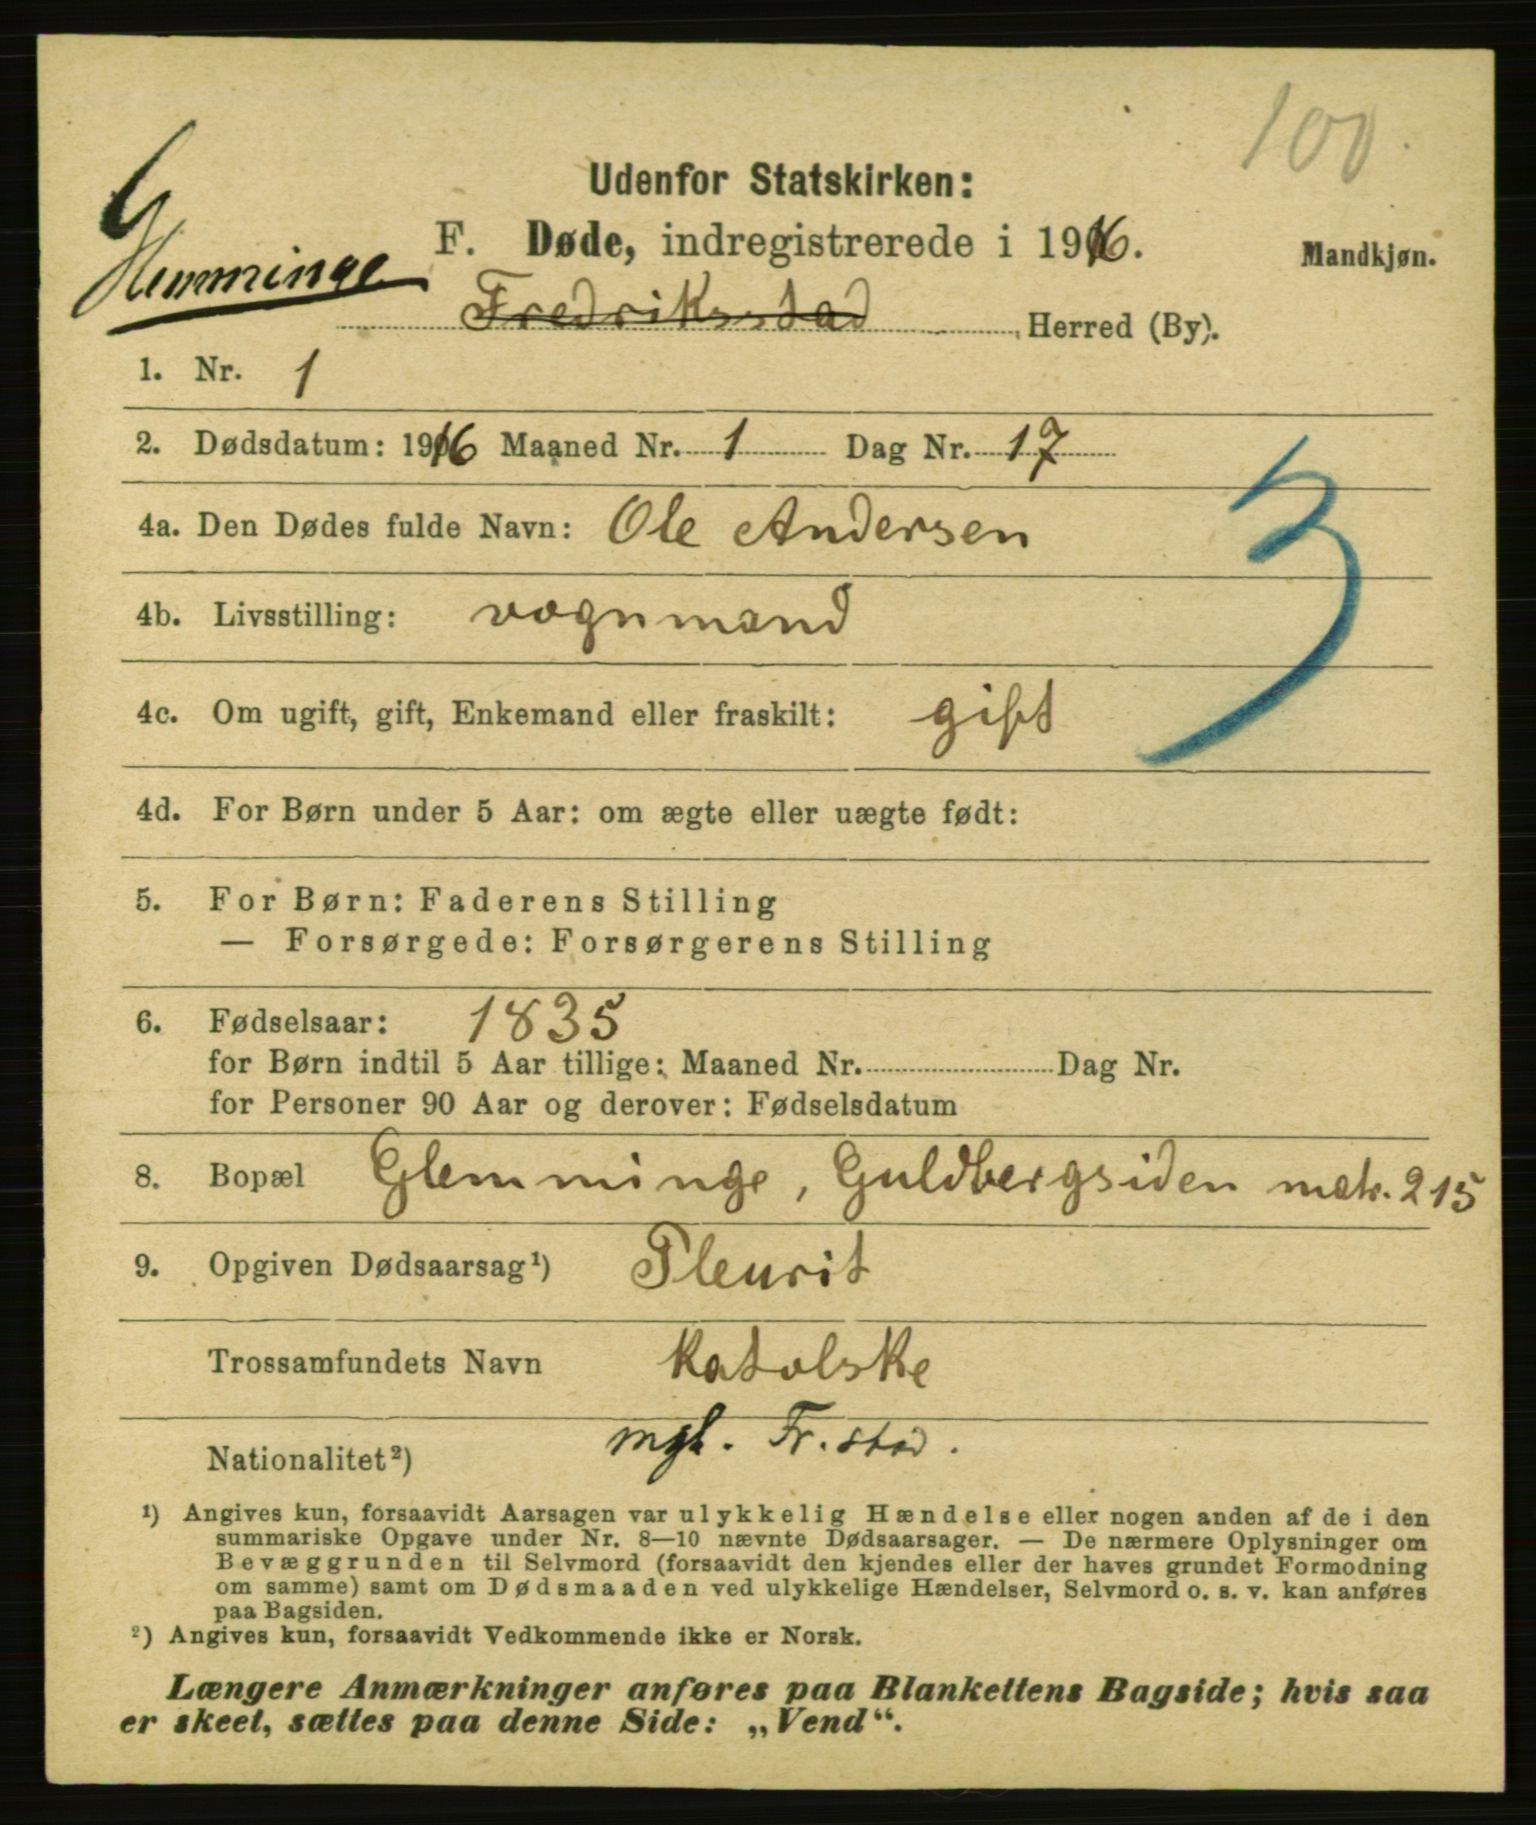 100.
Udenfor Statskirken:
F. Døde, indregistrerede i 1916.
Mandkjøn.
Glemminge
Fredriksstad Herred (By).
1. Nr. 1
2. Dødsdatum: 1916 Maaned Nr. 1 Dag Nr. 17
4a. Den Dødes fulde Navn: Ole Andersen
3
4b. Livsstilling: vognmand
4c. Om ugift, gift, Enkemand eller fraskilt: gift
4d. For Børn under 5 Aar: om ægte eller uægte født:
5. For Børn: Faderens Stilling
— Forsørgede: Forsørgerens Stilling
6. Fødselsaar: 1835
for Børn indtil 5 Aar tillige: Maaned Nr. Dag Nr.
for Personer 90 Aar og derover: Fødselsdatum
8. Bopæl Glemminge, Guldbergsiden matr. 215
9. Opgiven Dødsaarsag¹) Pleurit
Trossamfundets Navn katolske
mgh. Fr.stad.
Nationalitet²)
¹) Angives kun, forsaavidt Aarsagen var ulykkelig Hændelse eller nogen anden af de i den
summariske Opgave under Nr. 8—10 nævnte Dødsaarsager. — De nærmere Oplysninger om
Bevæggrunden til Selvmord (forsaavidt den kjendes eller der haves grundet Formodning
om samme) samt om Dødsmaaden ved ulykkelige Hændelser, Selvmord o. s. v. kan anføres
paa Bagsiden.
²) Angives kun, forsaavidt Vedkommende ikke er Norsk.
Længere Anmærkninger anføres paa Blankettens Bagside; hvis saa
er skeet, sættes paa denne Side: „Vend“.